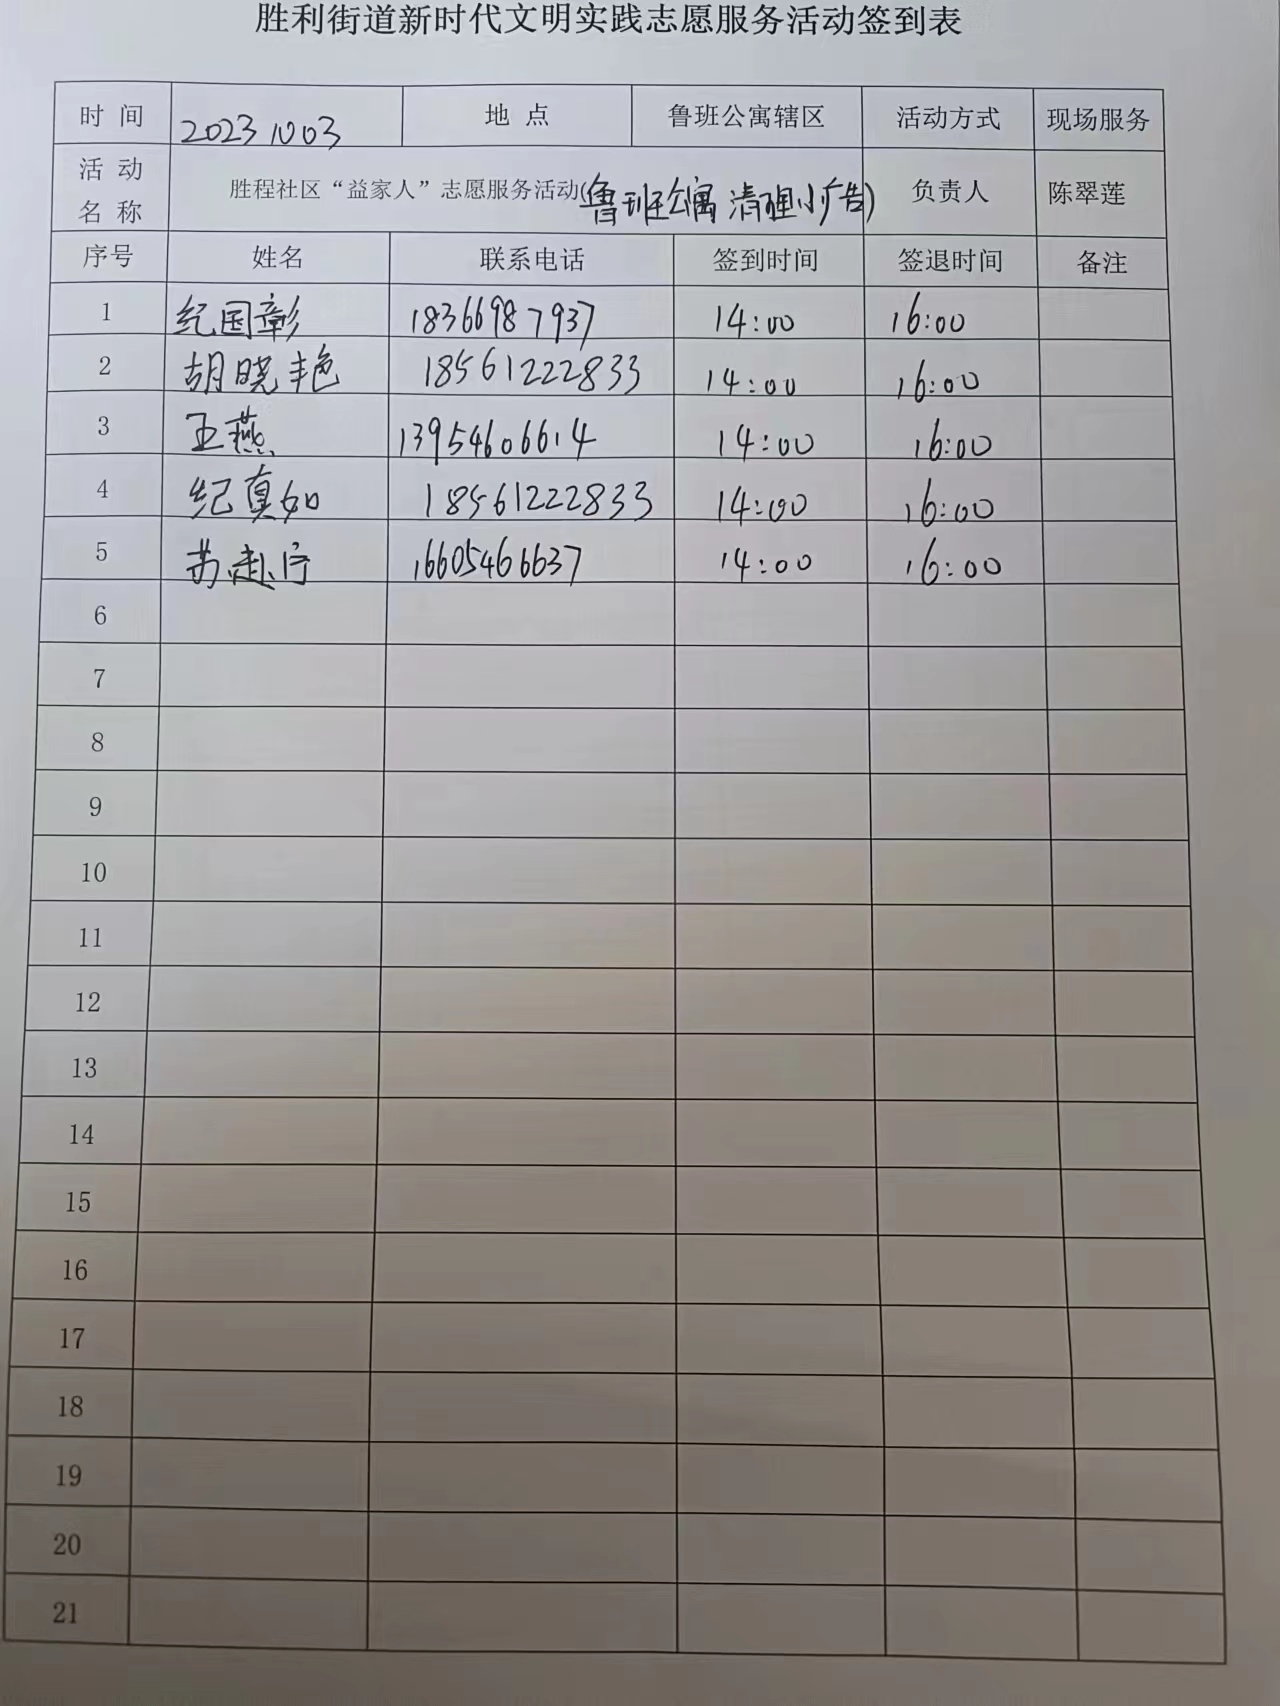 胜利街道新时代文明实践志愿服务活动签到表
时 间 20231003 地 点 鲁班公寓辖区 活动方式 现场服务
活 动 名 称 胜程社区“益家人”志愿服务活动(鲁班公寓清理小广告) 负责人 陈翠莲
序号 姓名 联系电话 签到时间 签退时间 备注
1 纪国彰 18366987937 14:00 16:00
2 胡晓艳 18561222833 14:00 16:00
3 王燕 13954606614 14:00 16:00
4 纪真如 18561222833 14:00 16:00
5 苏赴宁 16605466637 14:00 16:00
6
7
8
9
10
11
12
13
14
15
16
17
18
19
20
21